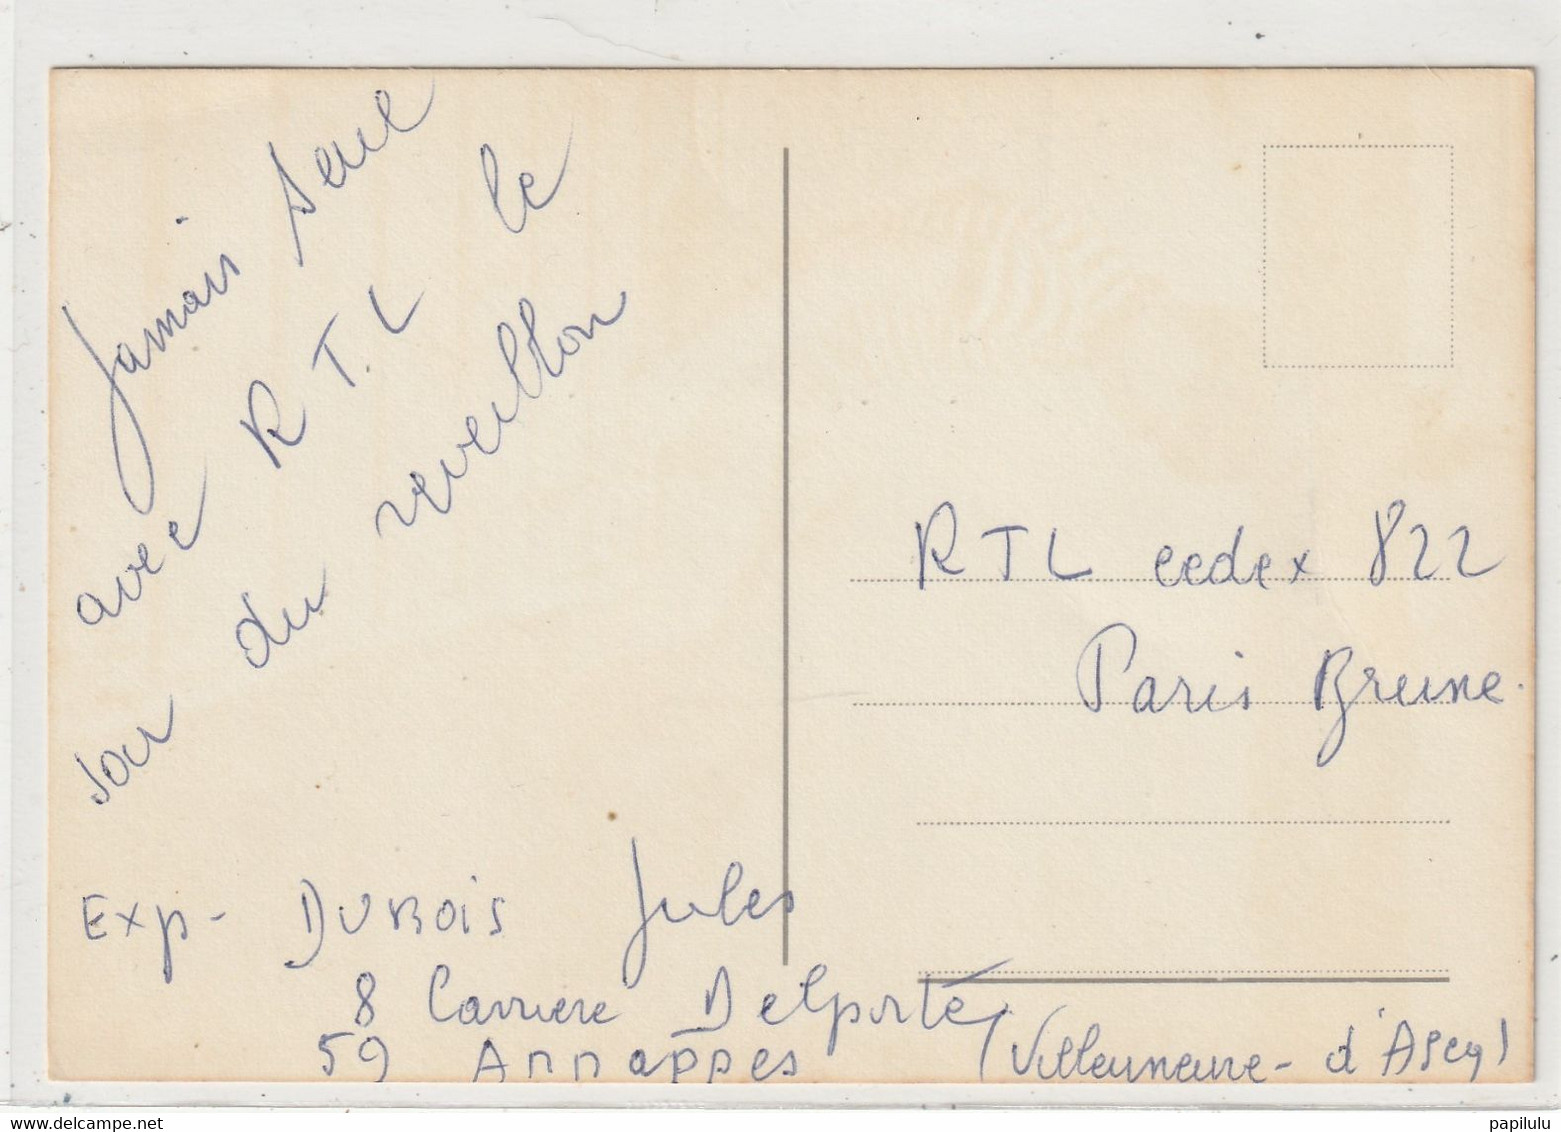 Jamais seul
avec RTL le
soir du reveillon
RTL cedex 822
Paris Brune.
Exp - DUBOIS Jules
8 Carriere Delporte
59 Annappes (Villeuneuve - d'Ascq)
papilulu